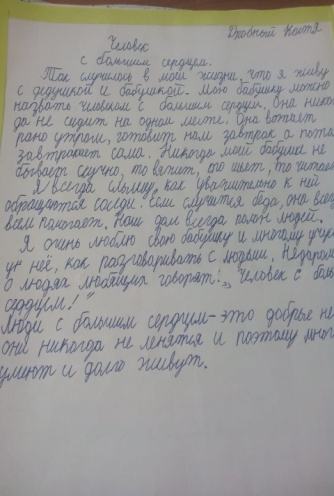 Дробный Костя
Человек
с большим сердцем.
Так случилось в моей жизни, что я живу
с дедушкой и бабушкой. Мою бабушку можно
назвать человеком с большим сердцем. Она нико
да не сидит на одном месте. Она встает
рано утром, готовит нам завтрак а пото
завтракает сама. Никогда моей бабушке не
бывает скучно, то вяжет, то шьет, то читает
Я всегда слышу, как уважительно к ней
обращаются соседи. Если случится беда, она все
всем помогает. Наш дом всегда полон людей.
Я очень люблю свою бабушку и многому учусь
у неё, как разговаривать с людьми. Недаром
о людях любящих говорят: „Человек с боль
сердцем!"
Люди с большим сердцем - это добрые не
они никогда не ленятся и поэтому мног
умеют и долго живут.